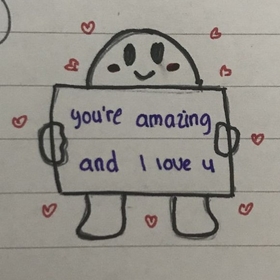 you're amazing
and I love u